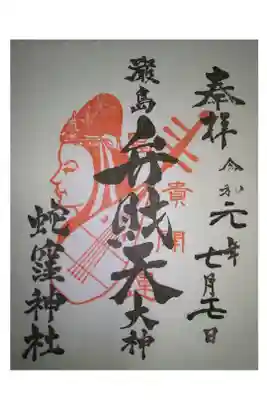 奉拝
令和元年
七月七日
嚴島
弁財天
大神
蛇窪神社